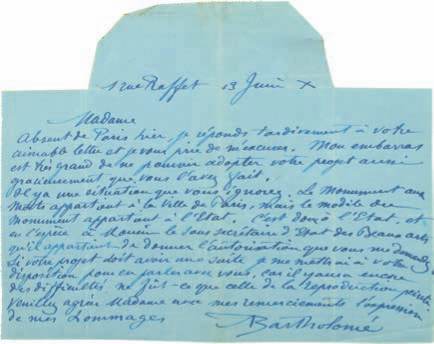 1 rue Raffet 13 Juin X
Madame
Absent de Paris hier, je réponds tardivement à votre
aimable lettre et vous prie de m'excuser. Mon embarras
est très grand de ne pouvoir adopter votre projet aussi
gracieusement que vous l'avez fait.
Il y a une situation que vous ignorez. Le monument aux
morts appartient à la Ville de Paris, mais le modèle du
monument appartient à l'Etat. C'est donc à l'Etat, et
en l'espèce à Monsieur le Sous secrétaire d'Etat des Beaux arts
qu'il appartient de donner l'autorisation que vous me demandez
Si votre projet doit avoir une suite je me mettrai à votre
disposition pour en parler avec vous, car il y aura encore
des difficultés ne fut-ce que celle de la reproduction
Veuillez agréer Madame avec mes remerciements l'expression
de mes hommages
Bartholomé